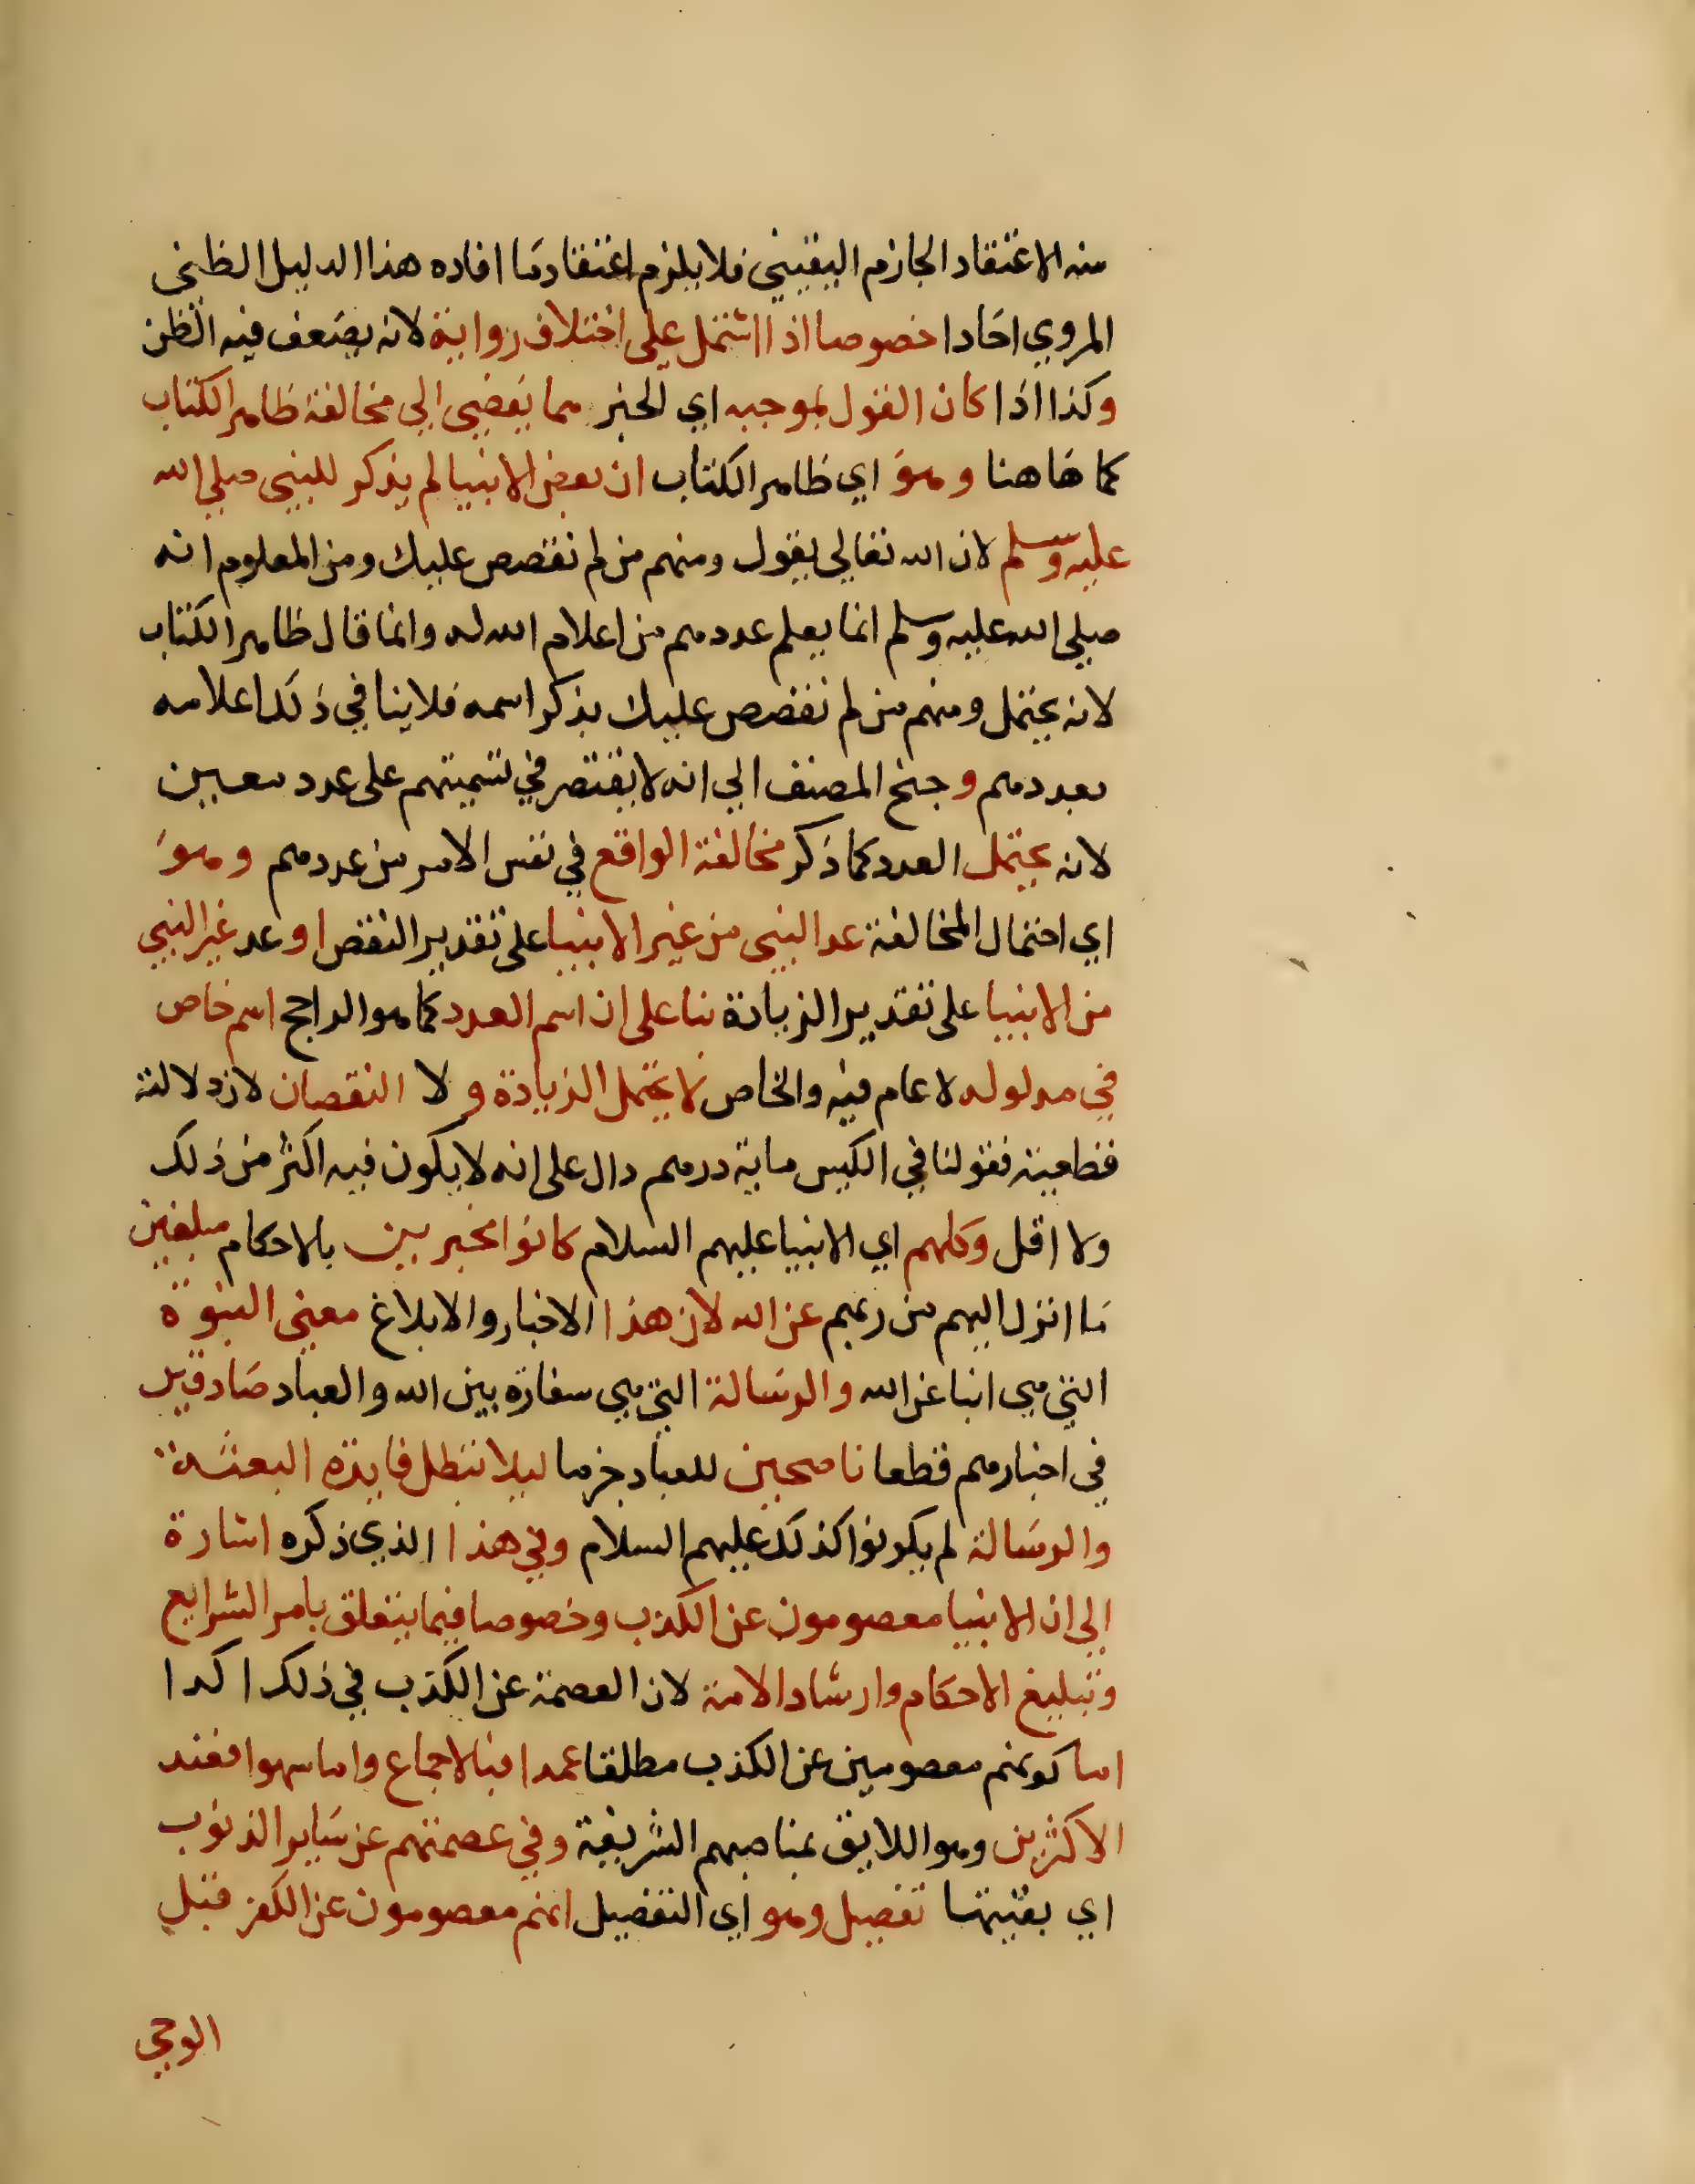 منه الاعتقاد الجازم اليقيني فلا يلزم اعتقاد ما افاده هذا الدليل الظني
المروي احادا خصوصا اذا اشتمل على اختلاف رواية لانه يضعف فيه الظن
وكذا اذا كان القول بموجبه اي الخبر مما يفضي الى مخالفة ظاهر الكتاب
كما هاهنا وهو اي ظاهر الكتاب ان بعض الانبيا لم يذكر للنبي صلى الله
عليه وسلم لان الله تعالى يقول ومنهم من لم نقصص عليك ومن المعلوم انه
صلى الله عليه وسلم انما يعلم عددهم من اعلام الله له وانما قال ظاهر الكتاب
لانه يحتمل ومنهم من لم نقصص عليك بذكر اسمه فلا ينافي ذلك اعلامه
بعددهم وجنح المصنف الى انه لا يقتصر في تسميتهم على عدد معين
لانه يحتمل العدد كما ذكر مخالفة الواقع في نفس الامر من عددهم وهو
اي احتمال المخالفة عد النبي من غير الانبيا على تقدير النقص او عد غير النبي
من الانبيا على تقدير الزيادة بنا على ان اسم العدد كما هو الراجح اسم خاص
في مدلوله لا عام فيه والخاص لا يحتمل الزيادة ولا النقصان لان دلالته
قطعية فقولنا في الكيس ماية درهم دال على انه لا يكون فيه اكثر من ذلك
ولا اقل وكلهم اي الانبيا عليهم السلام كانوا مخبرين بالاحكام مبلغين
ما انزل اليهم من ربهم عن الله لان هذا الاخبار والابلاغ معنى النبوة
التي هي انبا عن الله والرسالة التي هي سفارة بين الله والعباد صادقين
في اخبارهم قطعا ناصحين للعباد جزما ليلا تبطل فايدة البعثة
والرسالة لم يكونوا كذلك عليهم السلام وفي هذا الذي ذكره اشارة
الى ان الانبيا معصومون عن الكذب وخصوصا فيما يتعلق بامر الشرايع
وتبليغ الاحكام وارشاد الامة لان العصمة عن الكذب في ذلك اكدا
اما كونهم معصومين عن الكذب مطلقا عمدا فبالاجماع واما سهوا فعند
الاكثرين وهو اللايق بمناصبهم الشريفة وفي عصمتهم عن ساير الذنوب
اي بقيتها تفصيل وهو اي التفصيل انهم معصومون عن الكفر قبل
الوحي